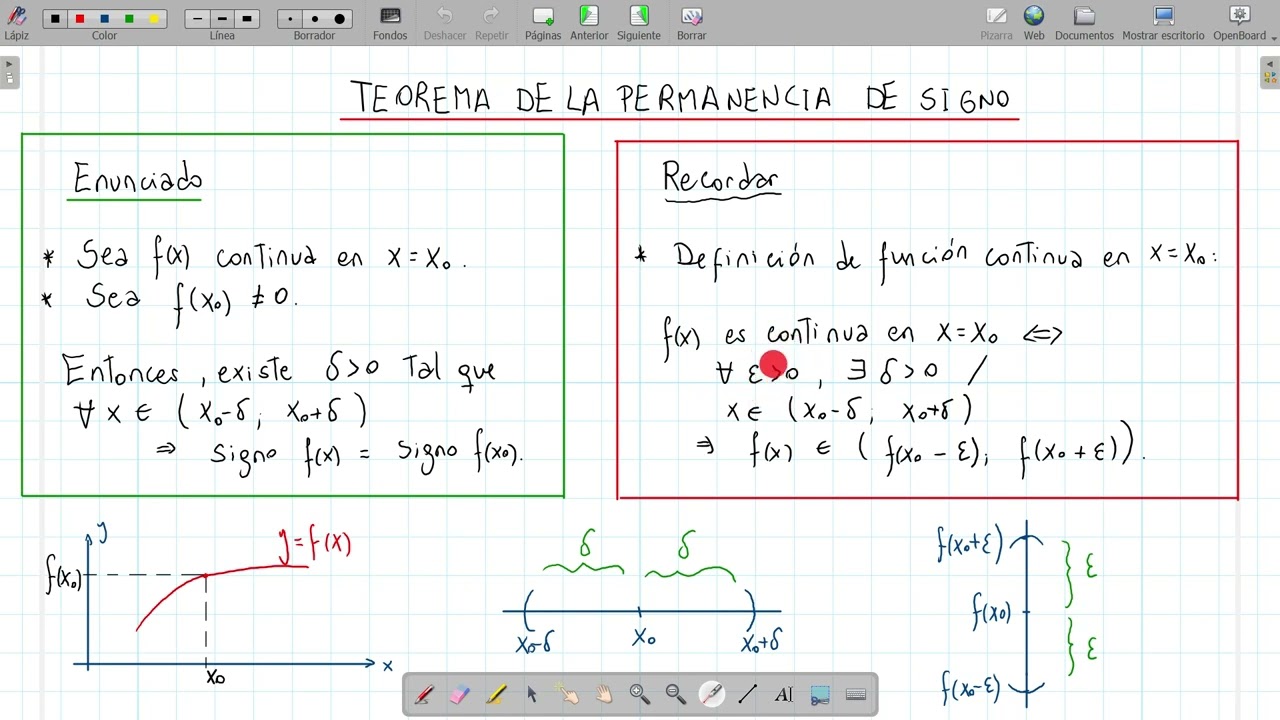 Lápiz
Color
Línea
Borrador
Fondos
Deshacer
Repetir
Páginas
Anterior
Siguiente
Borrar
Pizarra
Web
Documentos
Mostrar escritorio
OpenBoard
TEOREMA DE LA PERMANENCIA DE SIGNO
Enunciado
* Sea f(x) continua en x = x₀.
* Sea f(x₀) ≠ 0.
Entonces, existe δ>0 tal que
∀ x ∈ (x₀-δ; x₀+δ)
⇒ signo f(x) = signo f(x₀).
Recordar
* Definición de función continua en x = x₀:
f(x) es continua en x = x₀ ⇔
∀ ε>0, ∃ δ>0 /
x ∈ (x₀-δ; x₀+δ)
⇒ f(x) ∈ (f(x₀ - ε); f(x₀ + ε)).
y
y = f(x)
f(x₀)
x₀
x
δ δ
x₀-δ x₀ x₀+δ
f(x₀+ε)
ε
f(x₀)
ε
f(x₀-ε)
AI